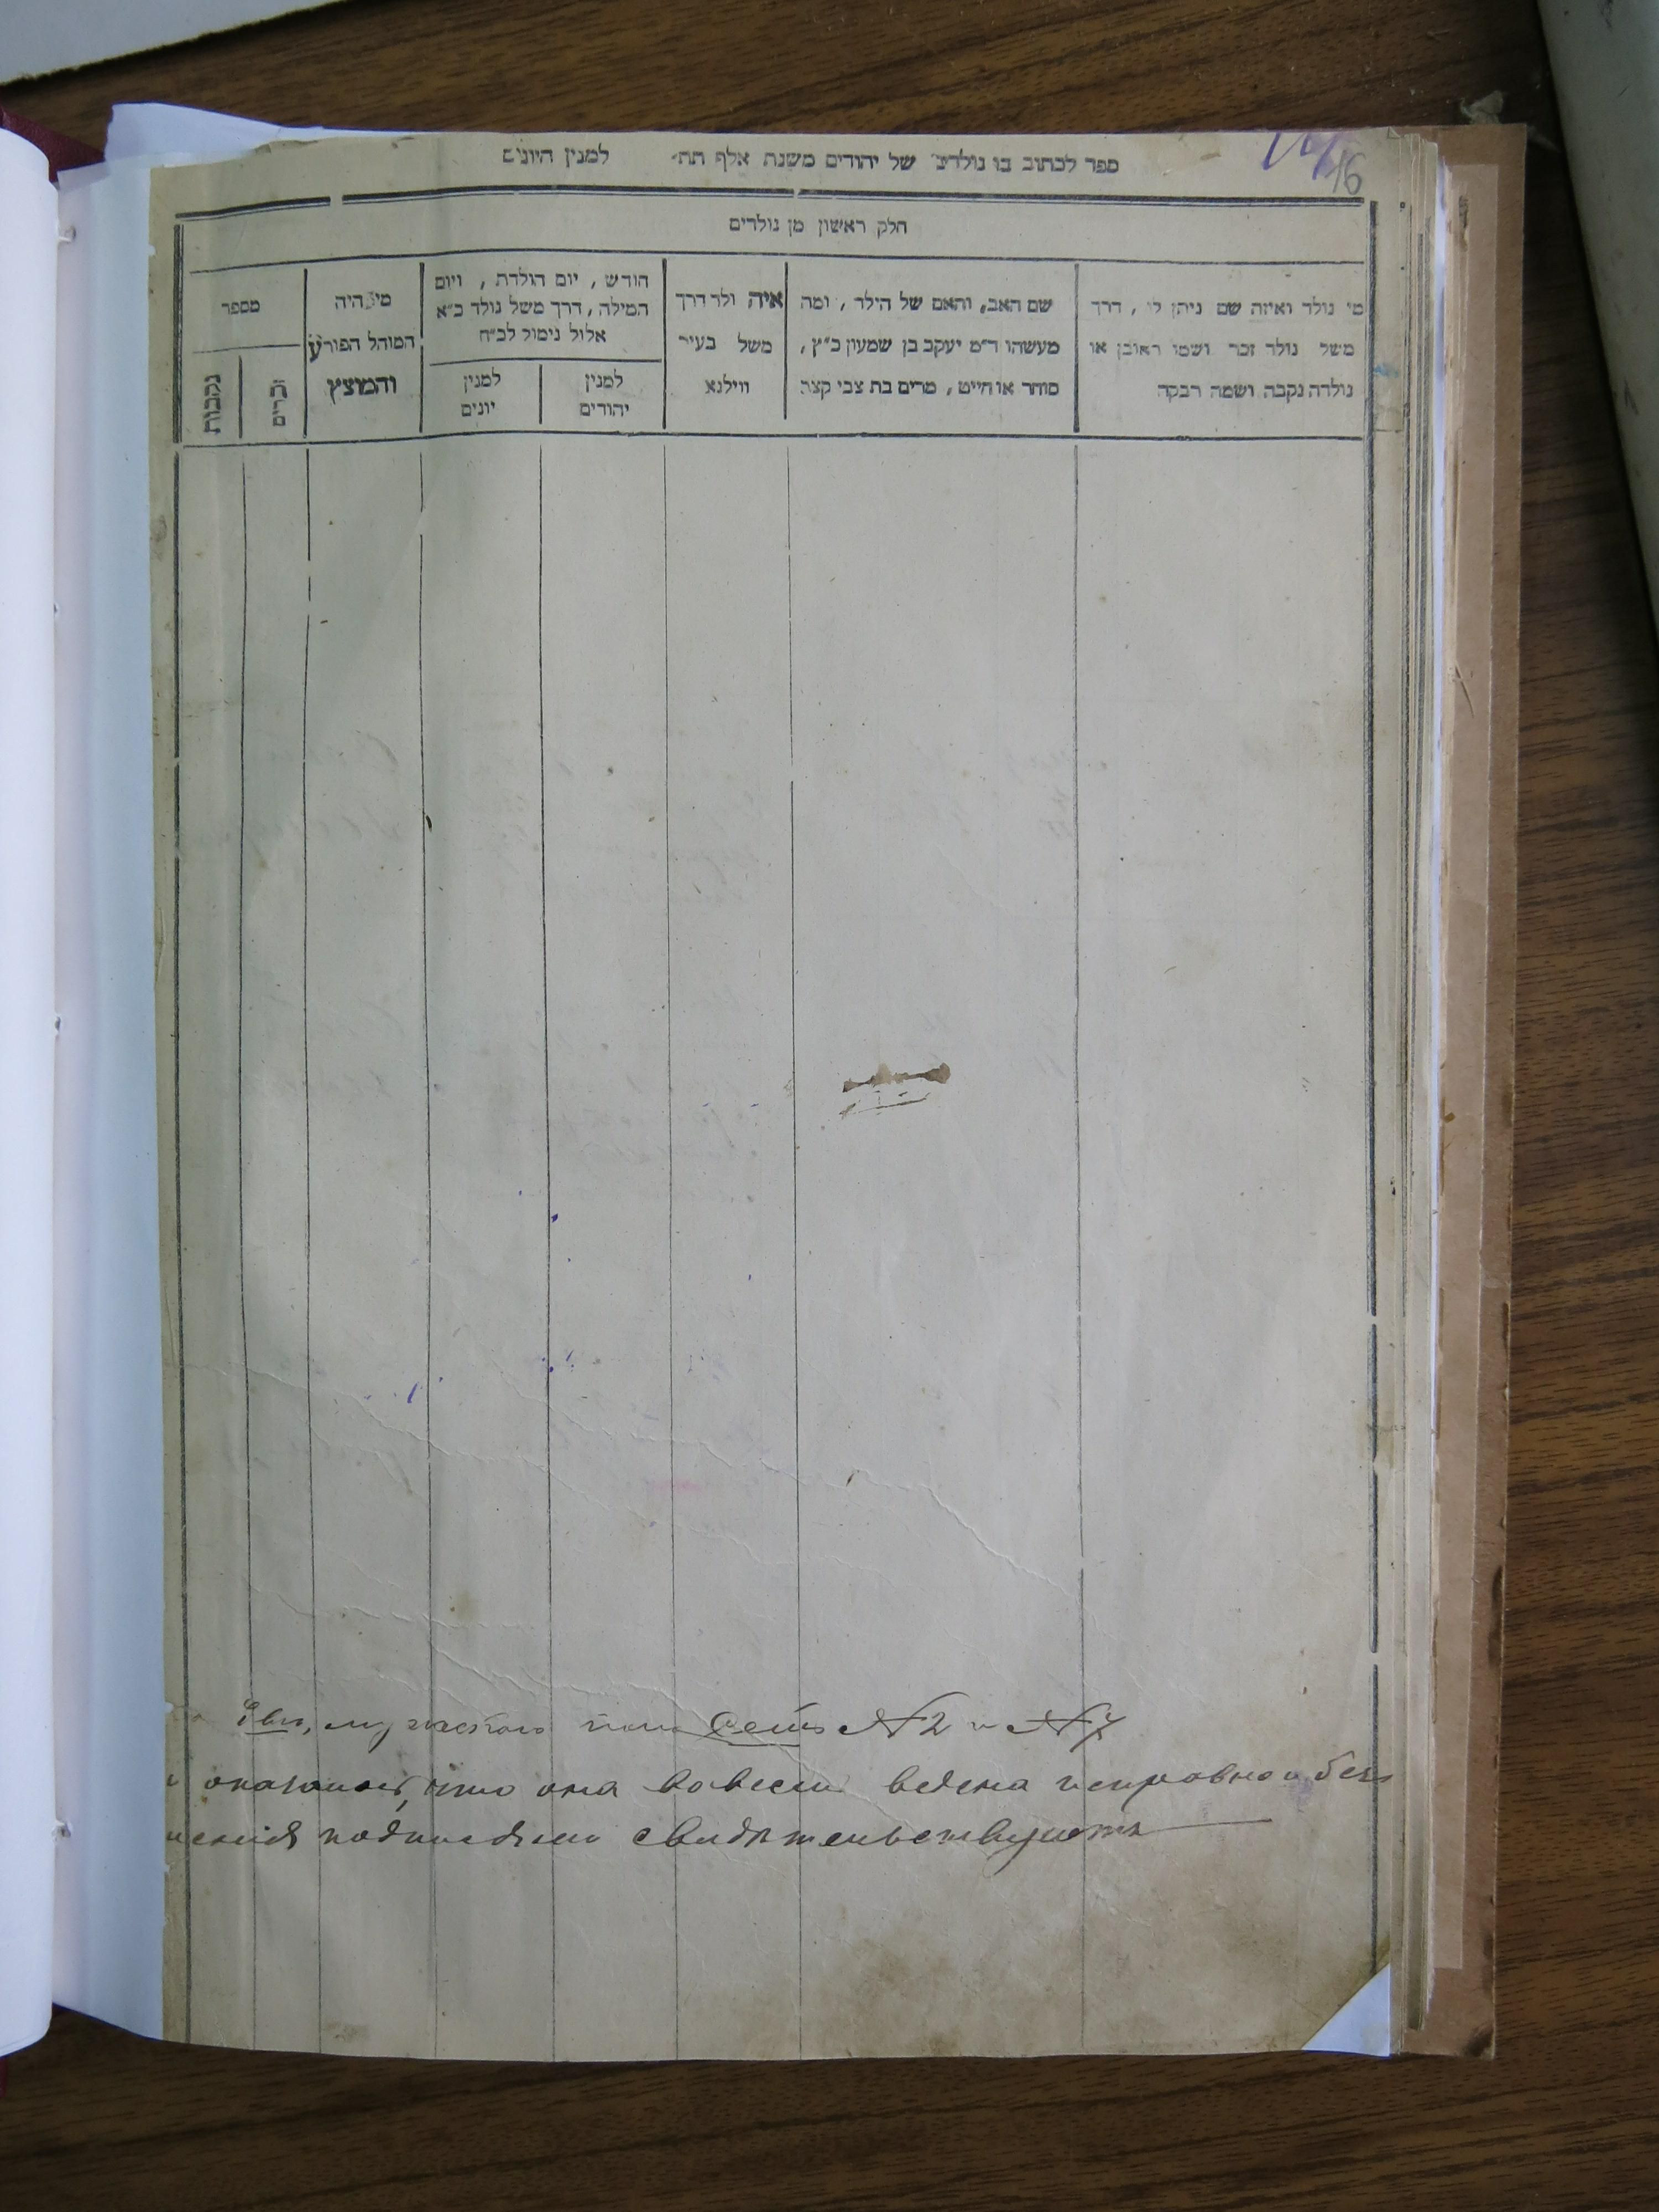 16
ספר לכתוב בו נולדים של יהודים משנת אלף תת למנין היונים
חלק ראשון מן נולדים
מי נולד ואיזה שם ניתן לו, דרך
משל נולד זכר ושמו ראובן או
נולדה נקבה ושמה רבקה
שם האב, והאם של הילד, ומה
מעשהו ד״מ יעקב בן שמעון כ״ץ,
סוחר או חייט, מרים בת צבי קצב
איה ולד דרך
משל בעיר
ווילנא
חודש, יום הולדת, ויום
המילה, דרך משל נולד כ״א
אלול נימול לכ״ח
למנין
יהודים
למנין
יונים
מי היה
המוהל הפורע
והמוצץ
מספר
זכרים
נקבות
№ 2 и № 7
оказалось, что она во всем ведена исправно и без
подписями свидѣтельствуетъ